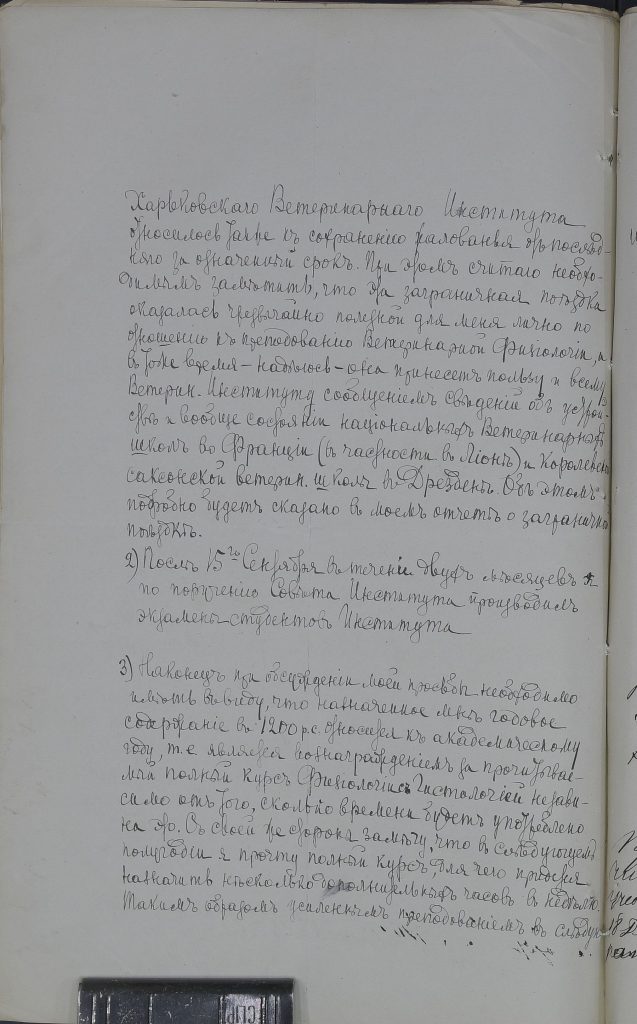 Харьковскаго Ветеринарнаго Института
относилось также къ сохраненію жалованья отъ послѣд-
няго за означенный срокъ. При этомъ считаю необхо-
димымъ замѣтить, что эта заграничная поѣздка
оказалась чрезвычайно полезной для меня лично по
отношенію къ преподаванію Ветеринарной Физіологіи, и
въ тоже время – надѣюсь – она принесетъ пользу и всему
Ветерин. Институту сообщеніемъ свѣденій объ устрой-
ствѣ и вообще состояніи національныхъ Ветеринарныхъ
школъ во Франціи (въ частности въ Ліонѣ) и Королевско
саксонской ветерин. школѣ въ Дрезденѣ. Объ этомъ
подробно будетъ сказано въ моемъ отчетѣ о заграничной
поѣздкѣ.
2) Послѣ 15го Сентября въ теченіи двухъ мѣсяцевъ я
по порученію Совѣта Института производилъ
экзамены студентовъ Института
3) Наконецъ при обсужденіи моей просьбы необходимо
имѣть въ виду, что назначенное мнѣ годовое
содержаніе въ 1200 р.с. относится къ академическому
году, т.е. является вознагражденіемъ за прочитывае-
мый полный курсъ Физіологіи съ Гистологіей незави-
симо отъ того, сколько времени будетъ употреблено
на это. Съ своей же стороны замѣчу, что въ слѣдующемъ
полугодіи я прочту полный курсъ, для чего просилъ
назначить нѣсколько дополнительныхъ часовъ въ недѣлю.
Такимъ образомъ усиленнымъ преподаваніемъ въ слѣдую-